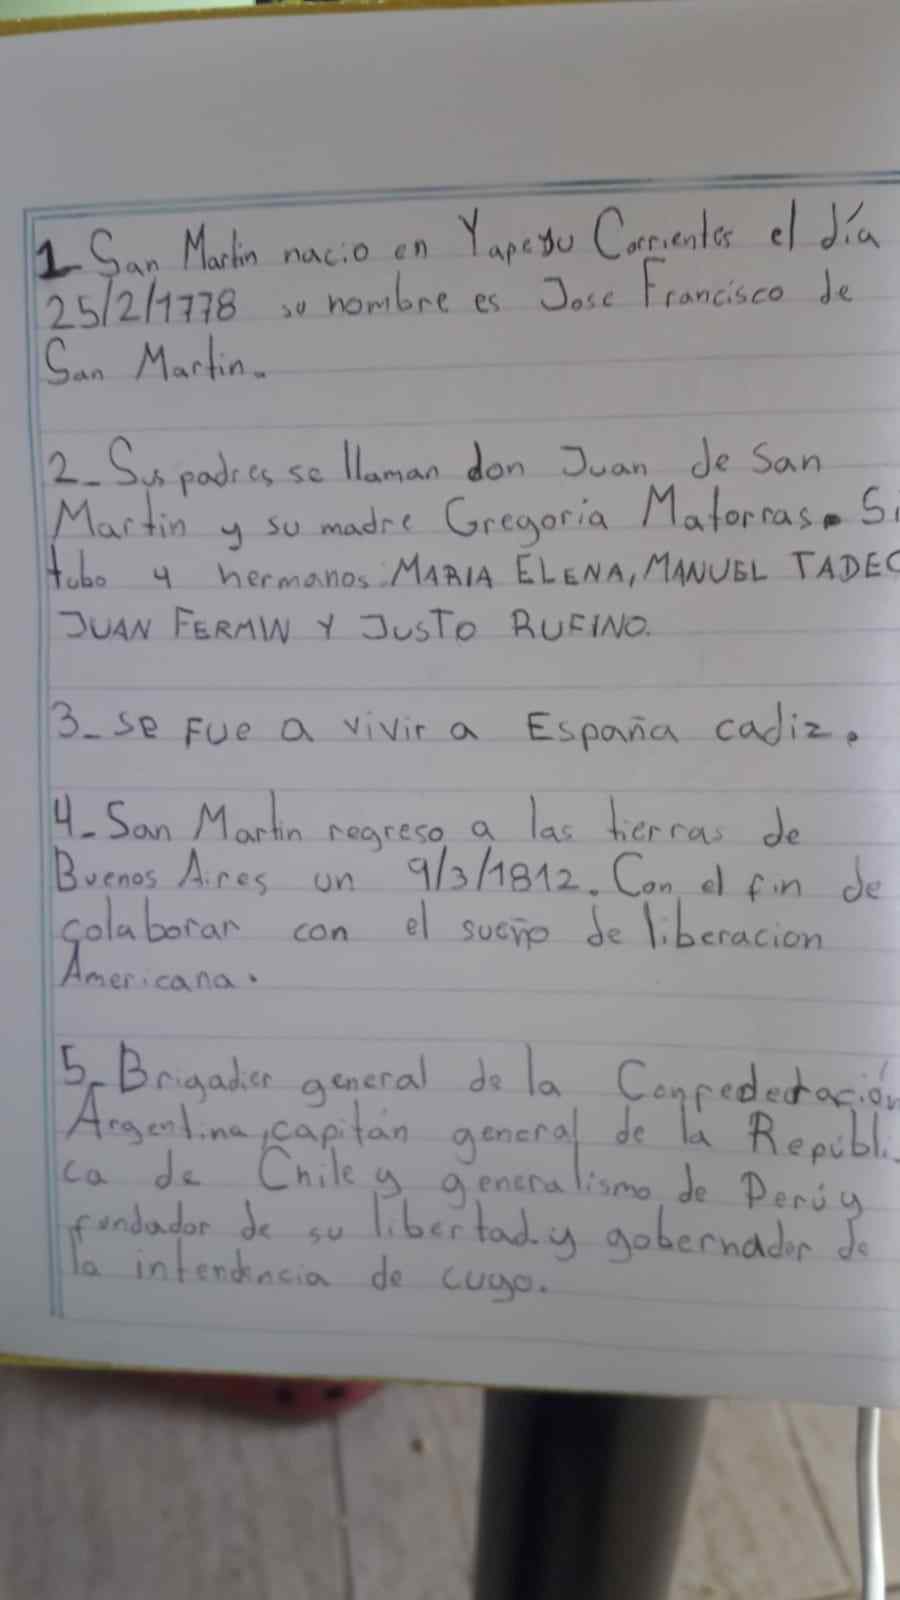 1_ San Martin nacio en Yapeyu Corrientes el día
25/2/1778 su nombre es Jose Francisco de
San Martin.
2_ Sus padres se llaman don Juan de San
Martin y su madre Gregoria Matorras. Si
tubo 4 hermanos: MARIA ELENA, MANUEL TADEO
JUAN FERMIN Y JUSTO RUFINO.
3_ se fue a vivir a España cadiz.
4_ San Martin regreso a las tierras de
Buenos Aires un 9/3/1812. Con el fin de
colaborar con el sueño de liberacion
Americana.
5_ Brigadier general de la Confederación
Argentina, capitán general de la Repúbli_
ca de Chile y generalismo de Perú y
fundador de su libertad y gobernador de
la intendencia de cuyo.